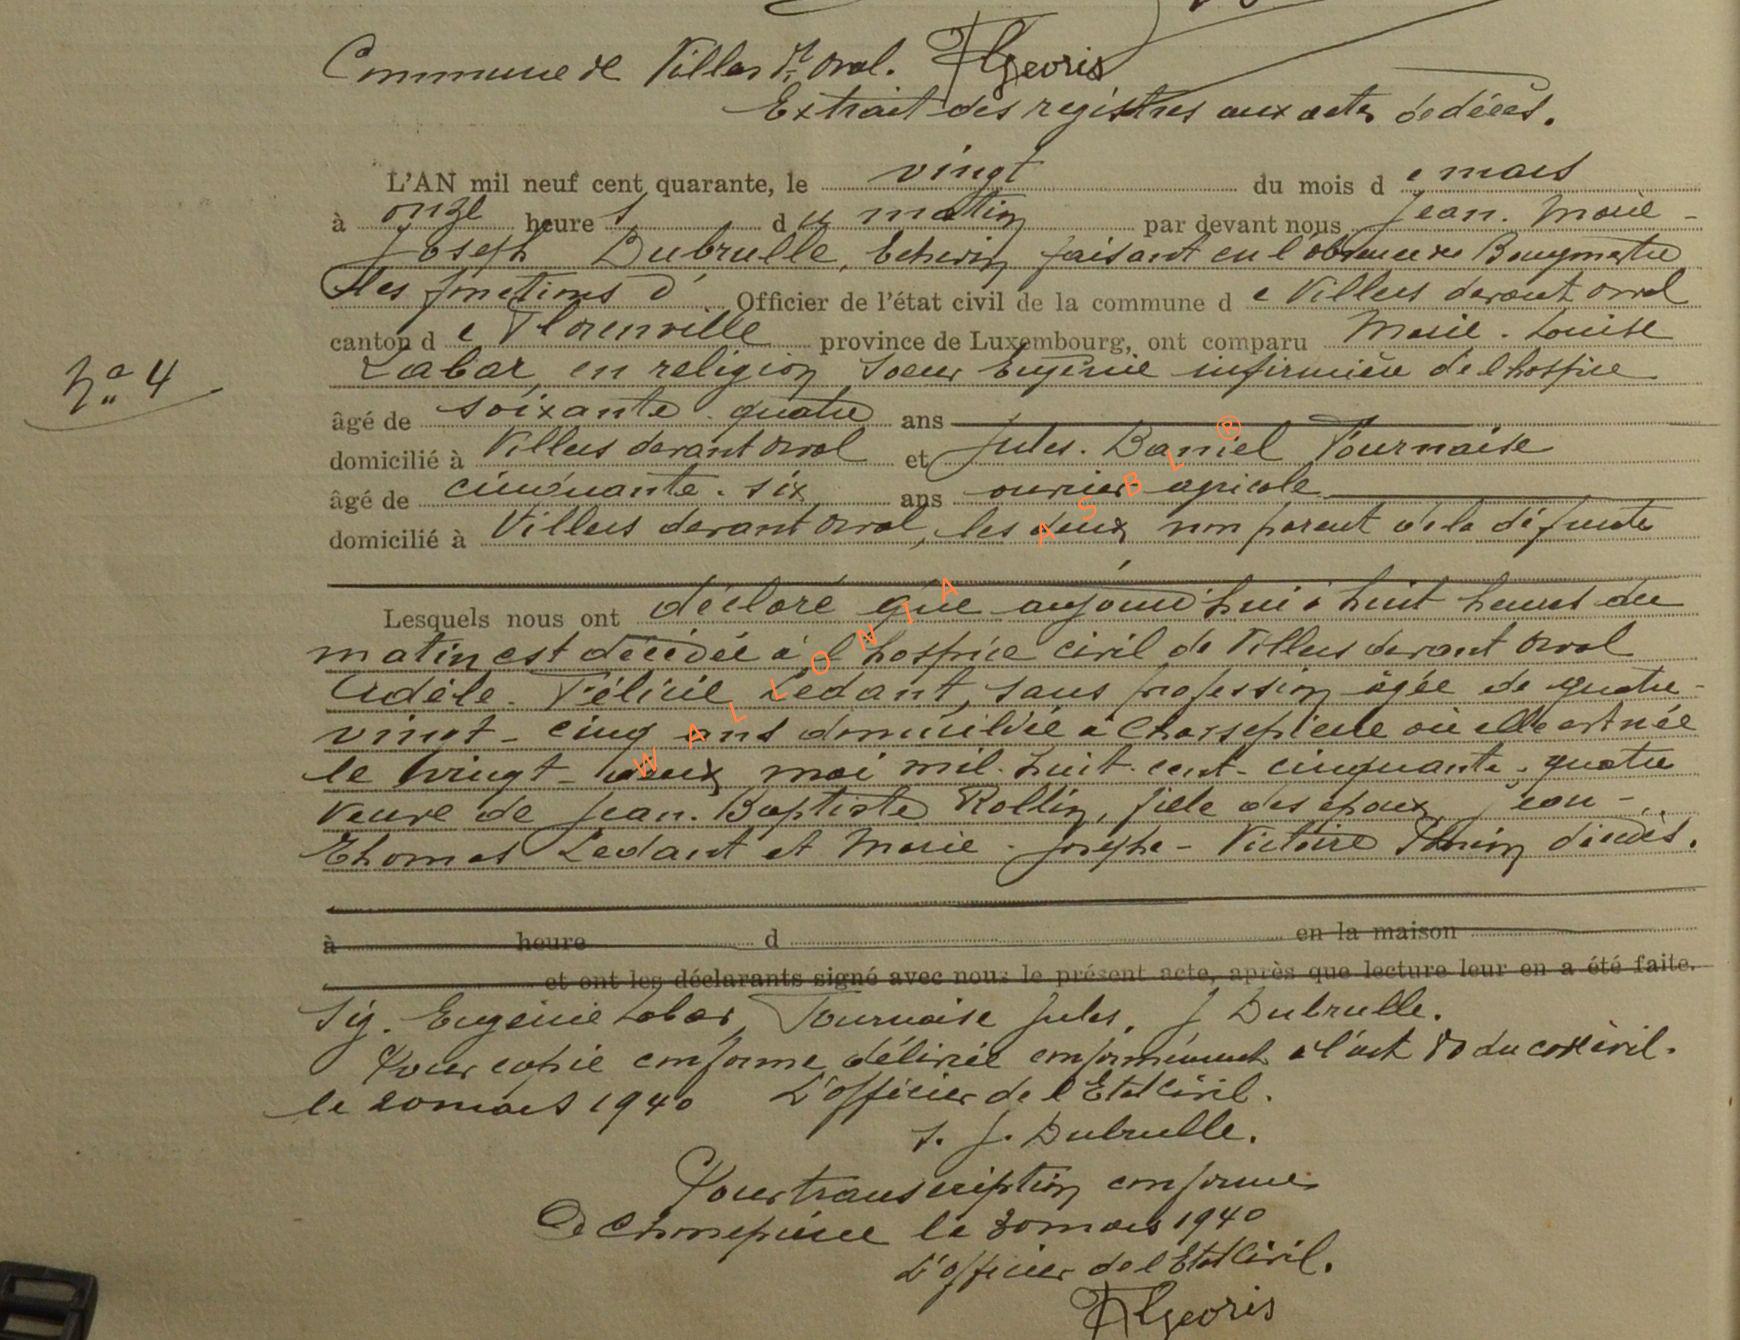 Commune de Villers dt Orval. Georis
Extrait des registres aux actes de décès.
L'AN mil neuf cent quarante, le vingt du mois de mars
à onze heures du matin par devant nous Jean-Marie-
Joseph Dubrulle, Echevin faisant en l'absence du Bourgmestre
les fonctions d' Officier de l'état civil de la commune de Villers devant Orval
canton de Florenville province de Luxembourg, ont comparu Marie-Louise
No 4
Labar en religion Soeur Eugénie infirmière de l'hospice
âgé de soixante-quatre ans
domicilié à Villers devant Orval et Jules-Daniel Tournaise
âgé de cinquante-six ans ouvrier agricole
domicilié à Villers devant Orval, les deux non parent de la défunte
Lesquels nous ont déclaré que aujourd'hui à huit heures du
matin est décédée à l'hospice civil de Villers devant Orval
Adèle-Félicie Ledant, sans profession âgée de quatre-
vingt-cinq ans domiciliée à Chassepierre où elle est née
le vingt-deux mai mil-huit-cent-cinquante-quatre
veuve de Jean-Baptiste Rollin, fille des époux Jean-
Thomas Ledant et Marie-Josephe-Victoire décédés.
à heure d en la maison
et ont les déclarants signé avec nous le présent acte, après que lecture leur en a été faite.
Sig. Eugénie Labar, Tournaise Jules, J Dubrulle.
Pour copie conforme délivrée conformément à l'art 80 du code civil.
le 20 mars 1940 L'officier de l'Etat Civil.
s. J. Dubrulle.
Pour transcription conforme
A Chassepierre le 30 mars 1940
L'officier de l'Etat Civil.
Georis
WALLONIA ASBL ®